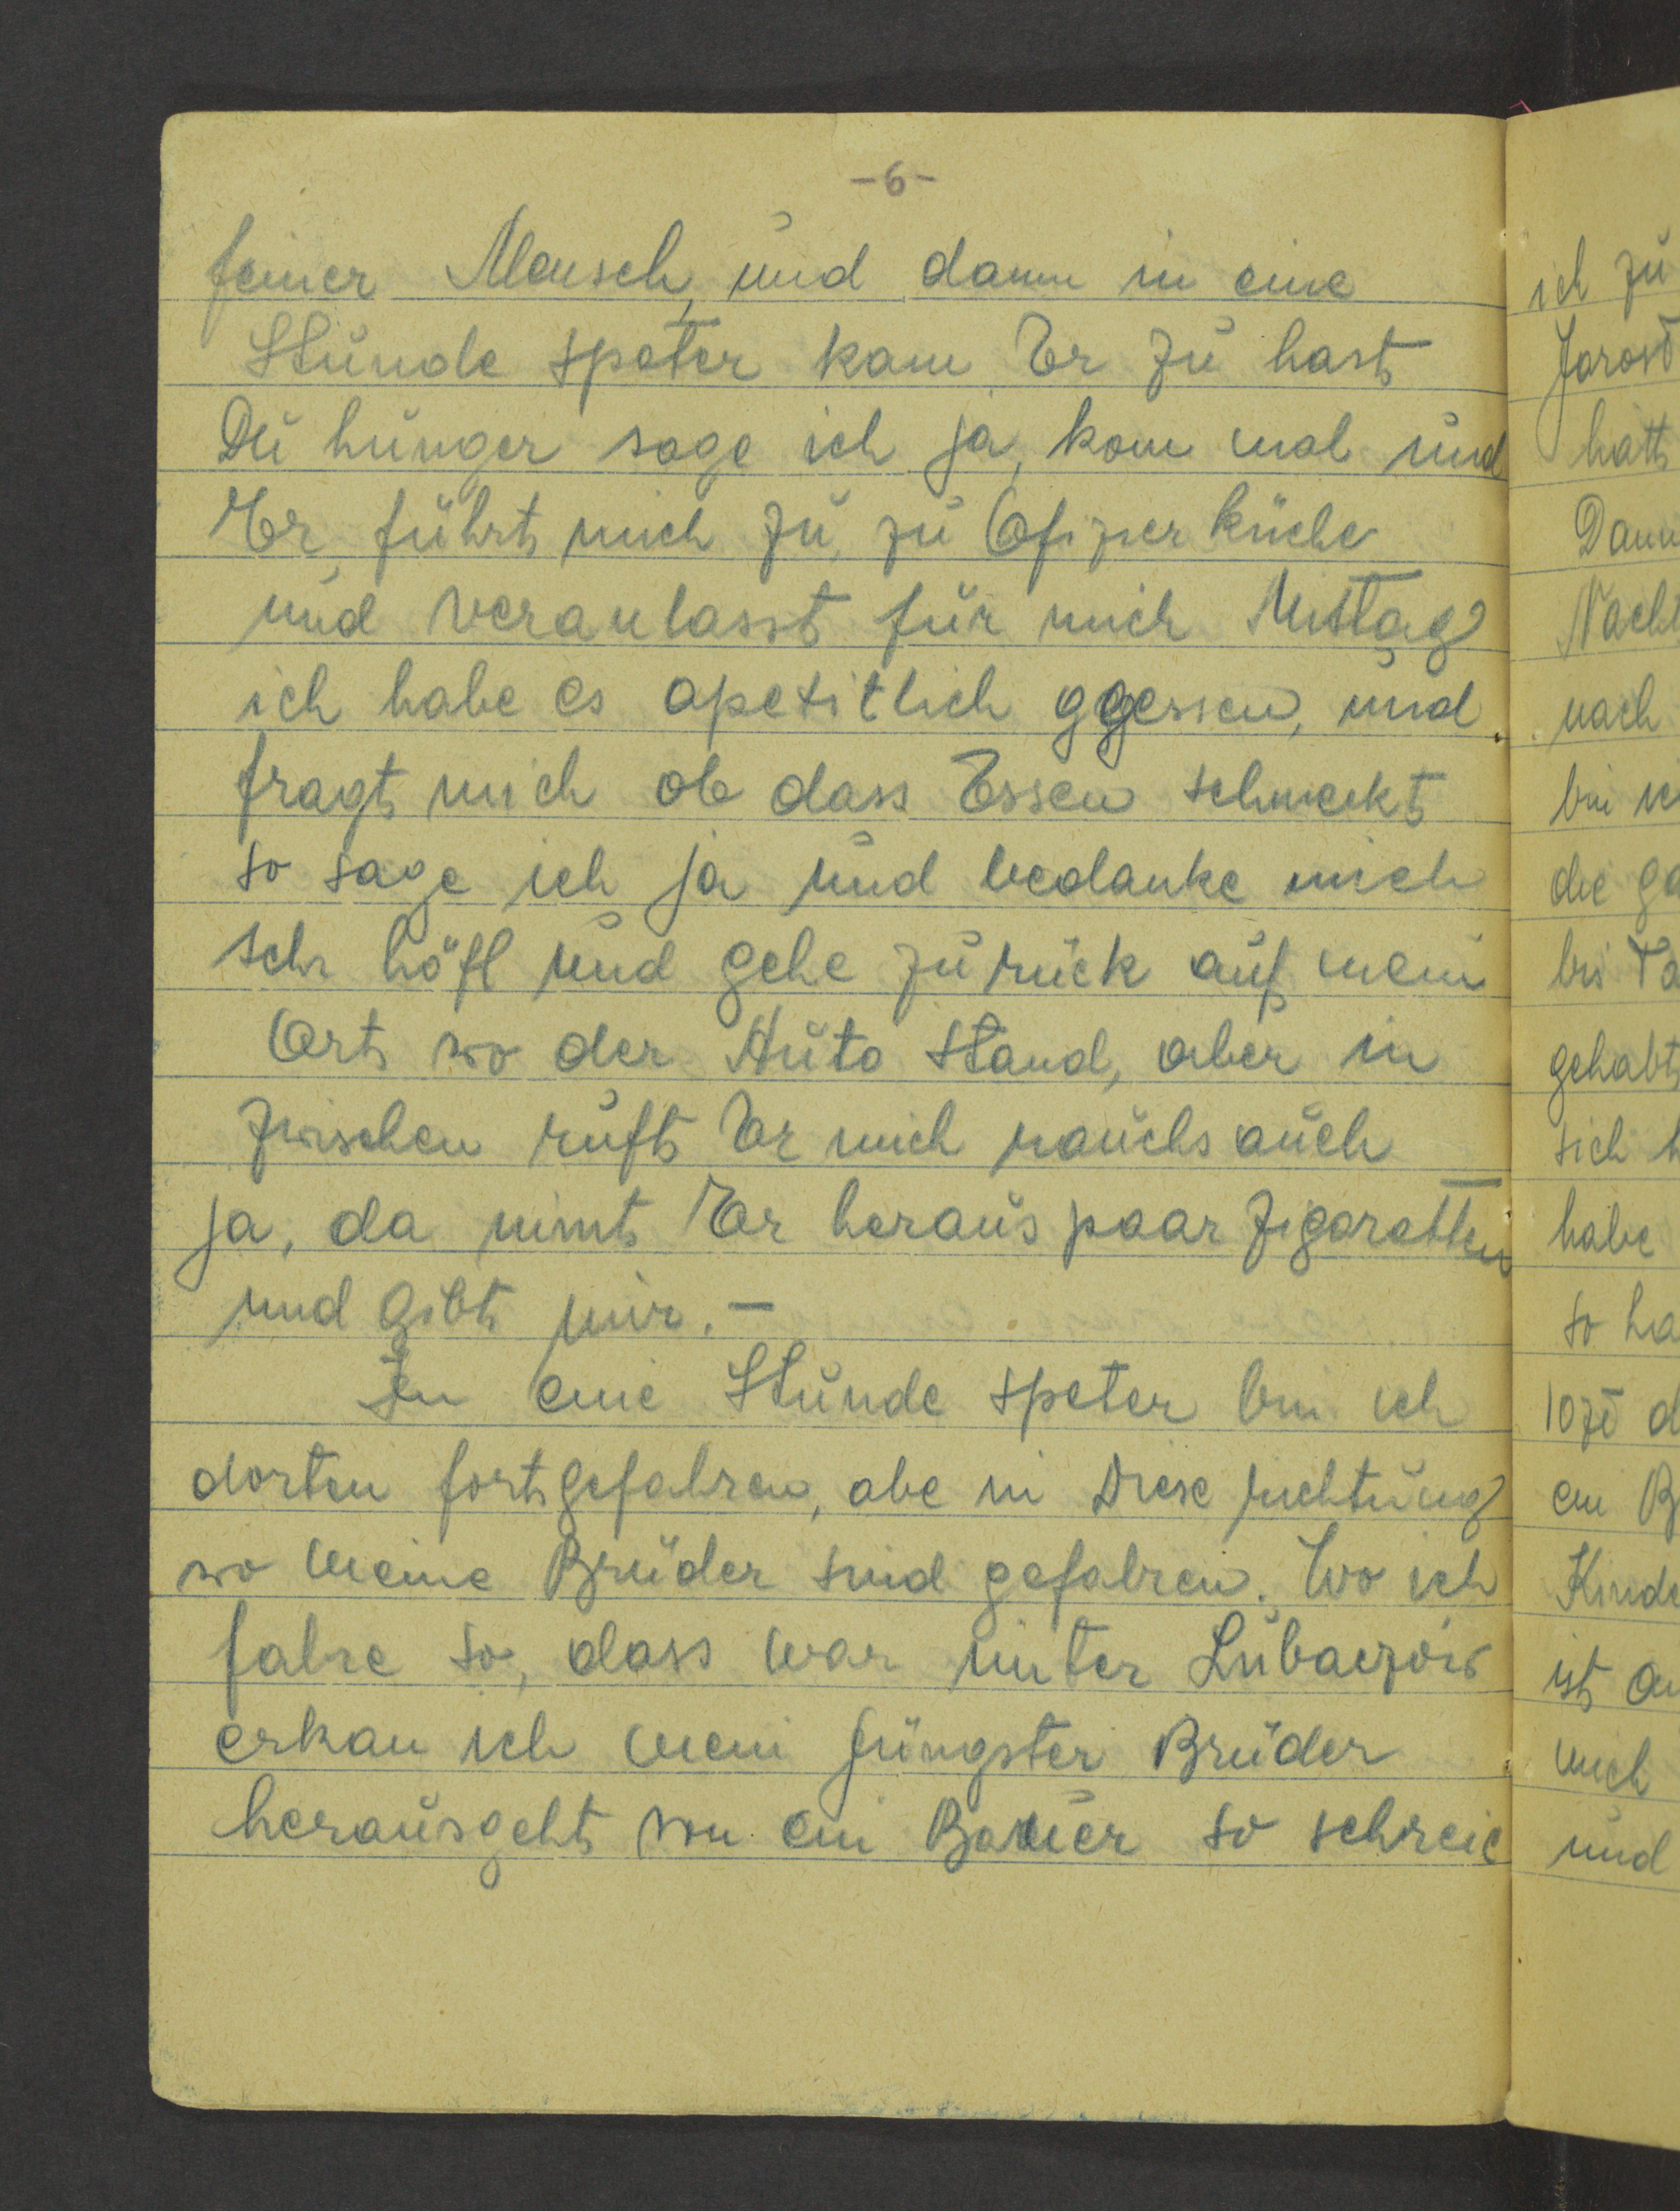 -6-
feiner Mensch, und dann in eine
Stunde speter kam Er zu hast
Du hunger sage ich ja, kom mal und
Er führt mich zu zu Ofizierküche
und veranlasst für mich Mittag
ich habe es apetitlich ggessen, und
fragt mich ob dass Essen schmekt
so sage ich ja und bedanke mich
sehr höfl und gehe zurück auf mein
Ort wo der Auto stand, aber in
zwischen ruft Er mich rauchs auch
ja, da nimt Er heraus paar Zigaretten
und gibt mir. –
In eine Stunde speter bin ich
dorten fortgefahren, abe in Diese richtung
wo meine Brüder sind gefahren. Wo ich
fahre so, dass war unter Lubaczów
erkan ich mein jüngster Bruder
herausgeht von ein Bauer so schreie
ich zu
Jarosł
hatt
Dann
Nacht
nach
bin
die ga
bis Ta
gehabt
sich
habe
so ha
10 zł d
ein B
Kinde
ist
mich
und